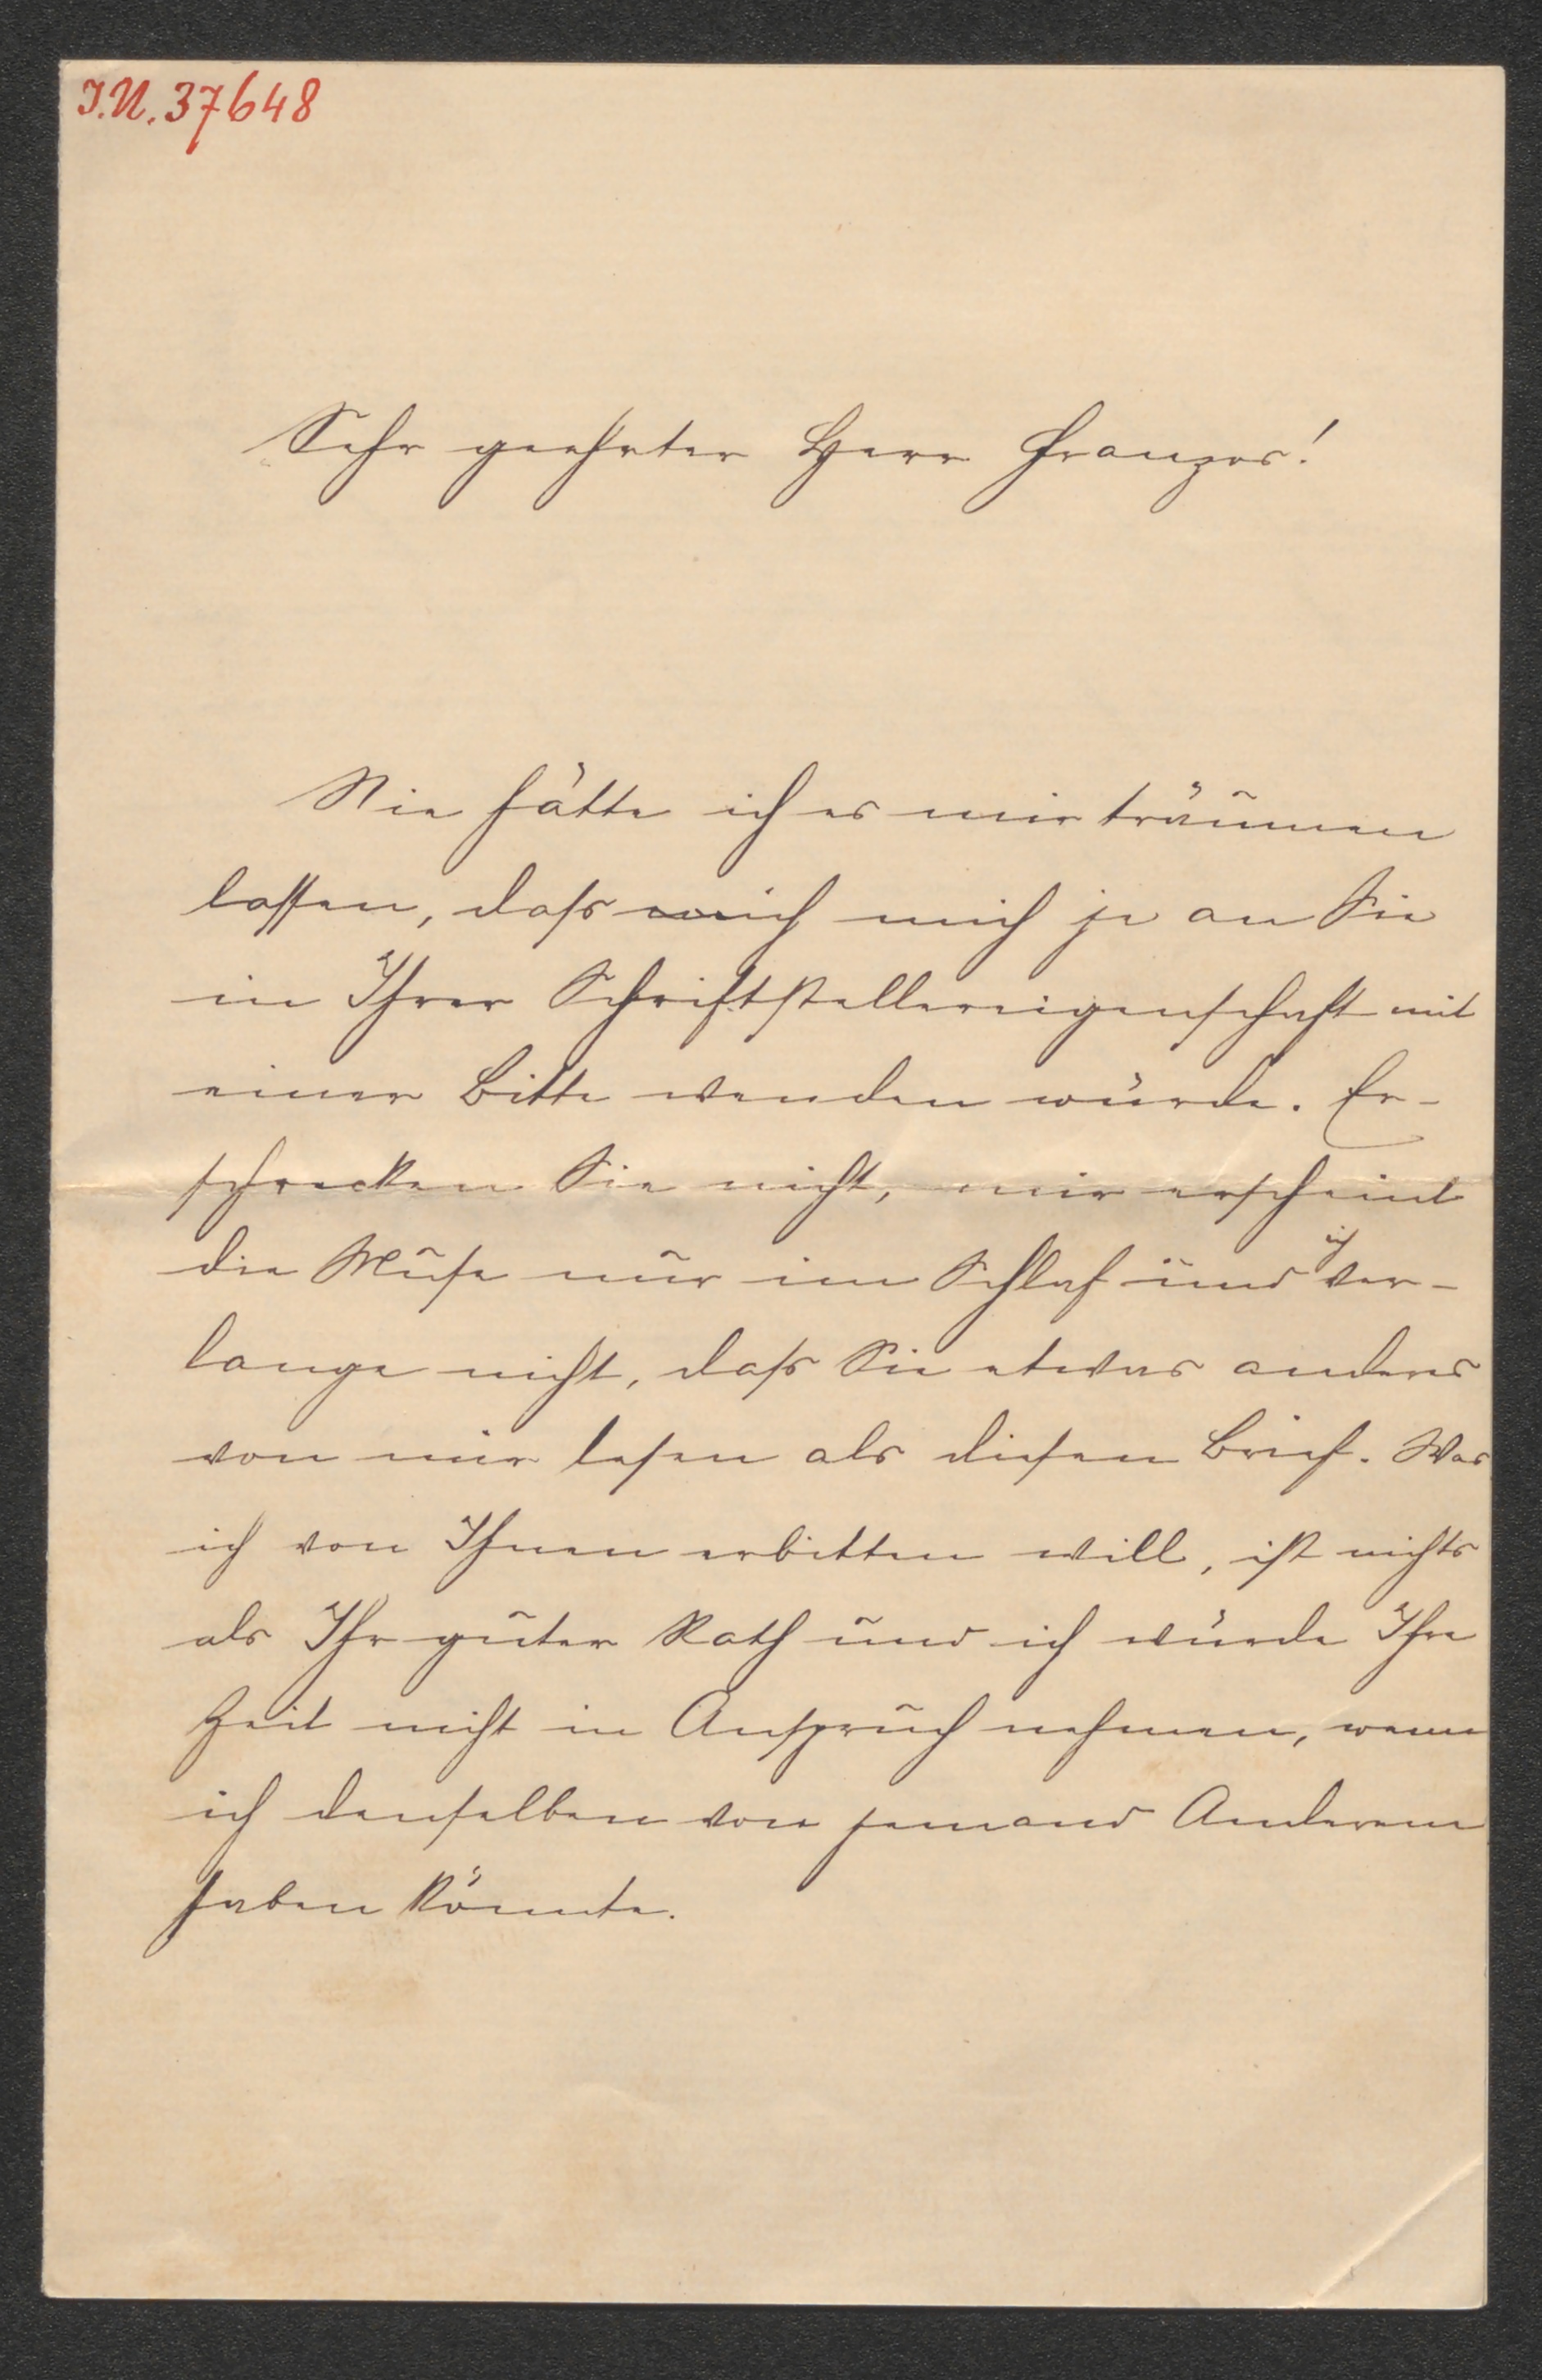 I.N. 37648
Sehr geehrter Herr Franzos!
Nie hätte ich es mir träumen
lassen, daß ich mich je an Sie
in Ihrer Schriftstellereigenschaft mit
einer Bitte wenden würde. Er-
schrecken Sie nicht, mir erscheint
die Muse nur im Schlaf und ich ver-
lange nicht, daß Sie etwas anderes
von mir lesen als diesen Brief. Was
ich von Ihnen erbitten will, ist nichts
als Ihr guter Rath und ich würde Ihre
Zeit nicht in Anspruch nehmen, wenn
ich denselben von jemand Anderem
haben könnte.